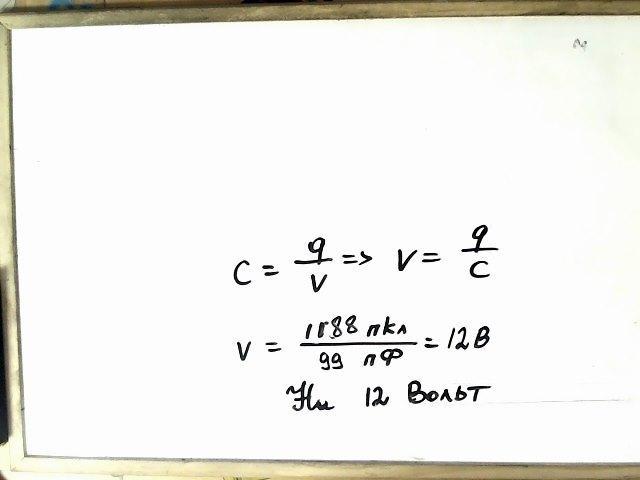 C = q/V => V = q/C
V = 1188 пкл / 99 пФ = 12 В
Ни 12 Вольт